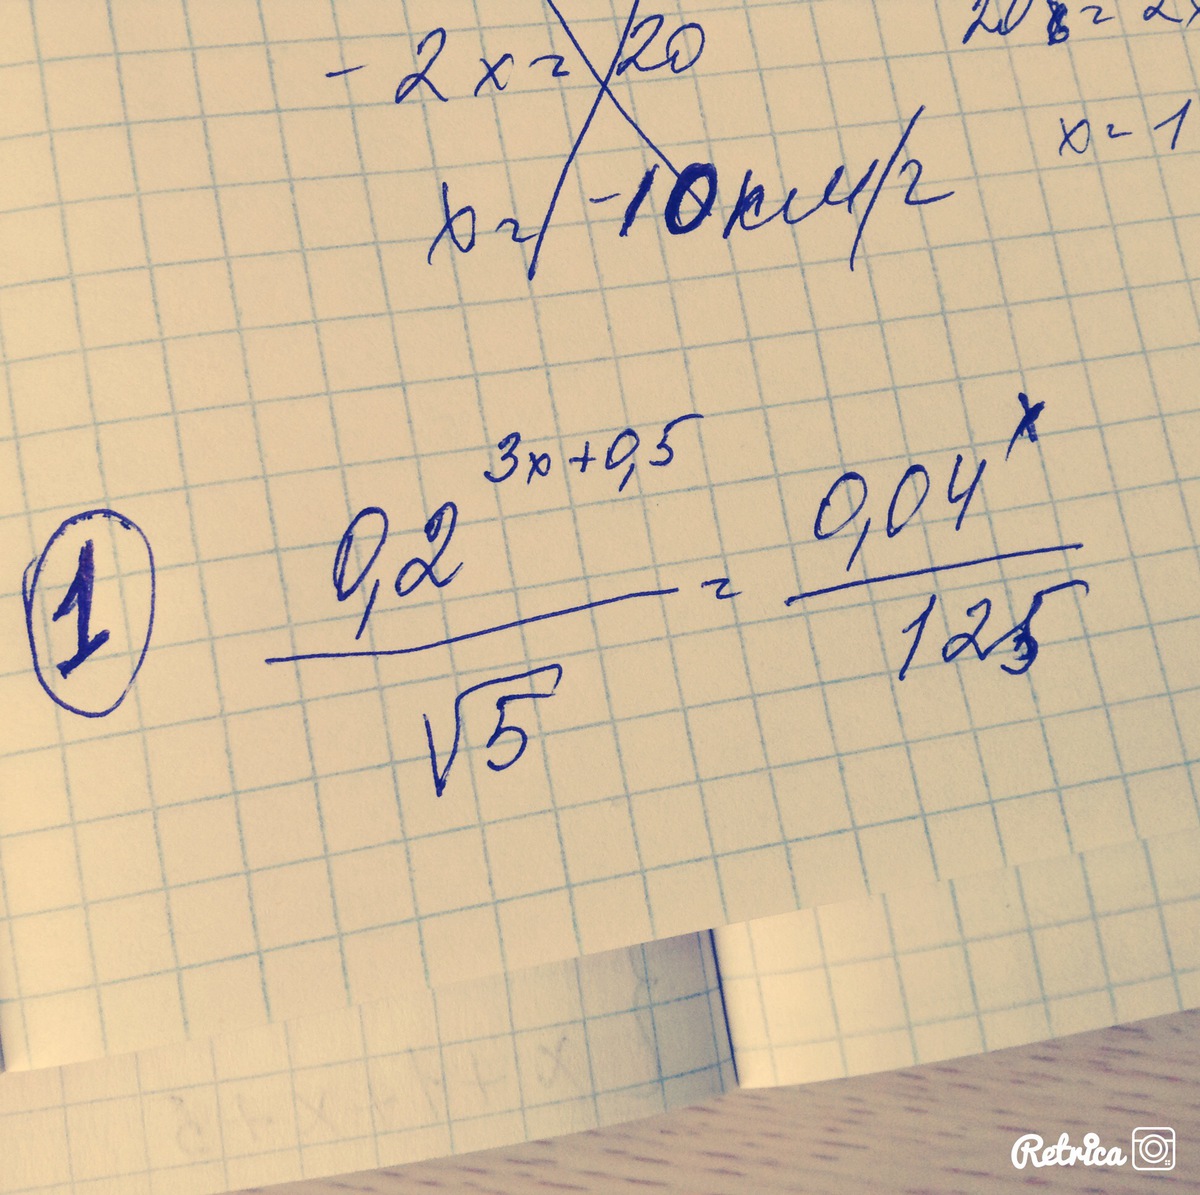 - 2x = 20
x = -10км/г
x = 1
1
0,2^{3x+0,5} / √5 = 0,04^x / 125
Retrica